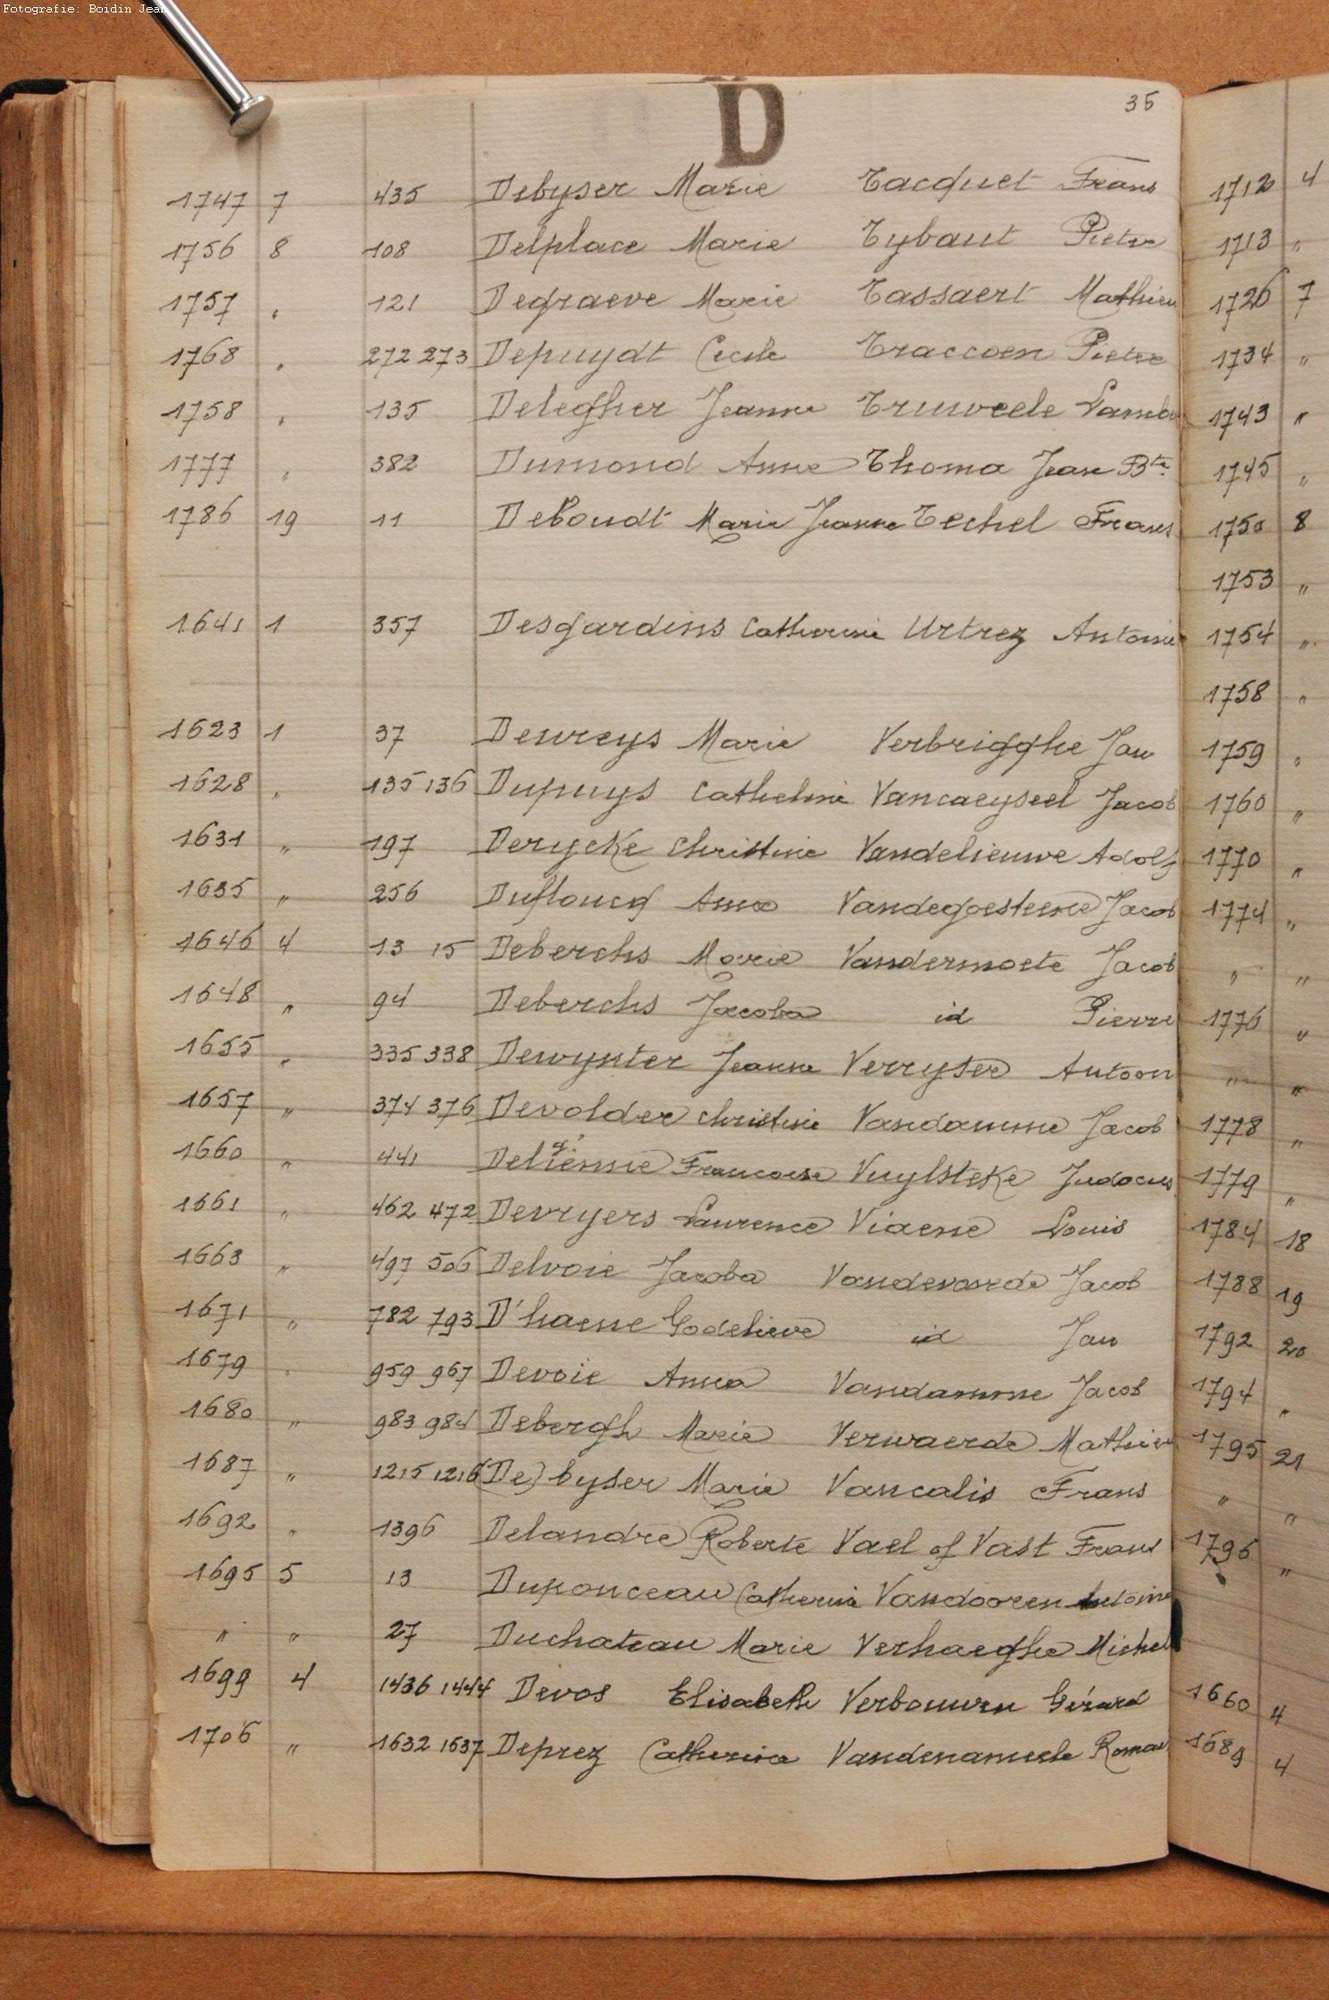 Fotografie: Boidin Jean
D
35
1747 7 435 Debyser Marie Tacquet Frans
1756 8 108 Delplace Marie Tybaut Pieter
1757 " 121 Degraeve Marie Tassaert Mathieu
1768 " 272 273 Depuydt Cecile Traccoen Pieter
1758 " 135 Delegher Jeanne Truweele Lamb
1777 " 382 Dumond Anne Thoma Jean Bte
1786 19 11 Deboudt Marie Jeanne Techel Frans
1641 1 357 Desgardins Catherine Urtrez Antoine
1623 1 37 Deureys Marie Verbrigghe Jan
1628 " 135 136 Dupuys Catheline Vancaeyseel Jacob
1631 " 197 Derycke Christine Vandelieuwe Adolf
1635 " 256 Dufloucq Anna Vandegoesteene Jacob
1646 4 13 15 Deberchs Marie Vandermoete Jacob
1648 " 94 Deberchs Jacoba id Pierre
1655 " 335 338 Dewynter Jeanne Verryser Antoon
1657 " 374 376 Devolder Christine Vandamme Jacob
1660 " 441 Deltenne Francoise Vuylsteke Judocus
1661 " 462 472 Devryers Laurence Viaene Louis
1663 " 497 506 Delvoie Jacoba Vandewaerde Jacob
1671 " 782 793 D'haene Godelieve id Jan
1679 " 959 967 Devoie Anna Vandamme Jacob
1680 " 983 984 Debergh Marie Verwaerde Mathieu
1687 " 1215 1216 (De) byser Marie Vancalis Frans
1692 " 1396 Delandre Roberte Vael of Vast Frans
1695 5 13 Duponceau Catherine Vandooren Antoine
" " 27 Duchateau Marie Verhaeghe Michel
1699 4 1436 1444 Devos Elisabeth Verbouwen Gérard
1706 " 1632 1637 Deprez Catherine Vandenameele Roman
1712 4
1713 "
1726 7
1734 "
1743 "
1745 "
1750 8
1753 "
1754 "
1758 "
1759 "
1760 "
1770 "
1774 "
" "
1776 "
" "
1778 "
1779 "
1784 18
1788 19
1792 20
1794 "
1795 21
" "
1796 "
1660 4
1689 4